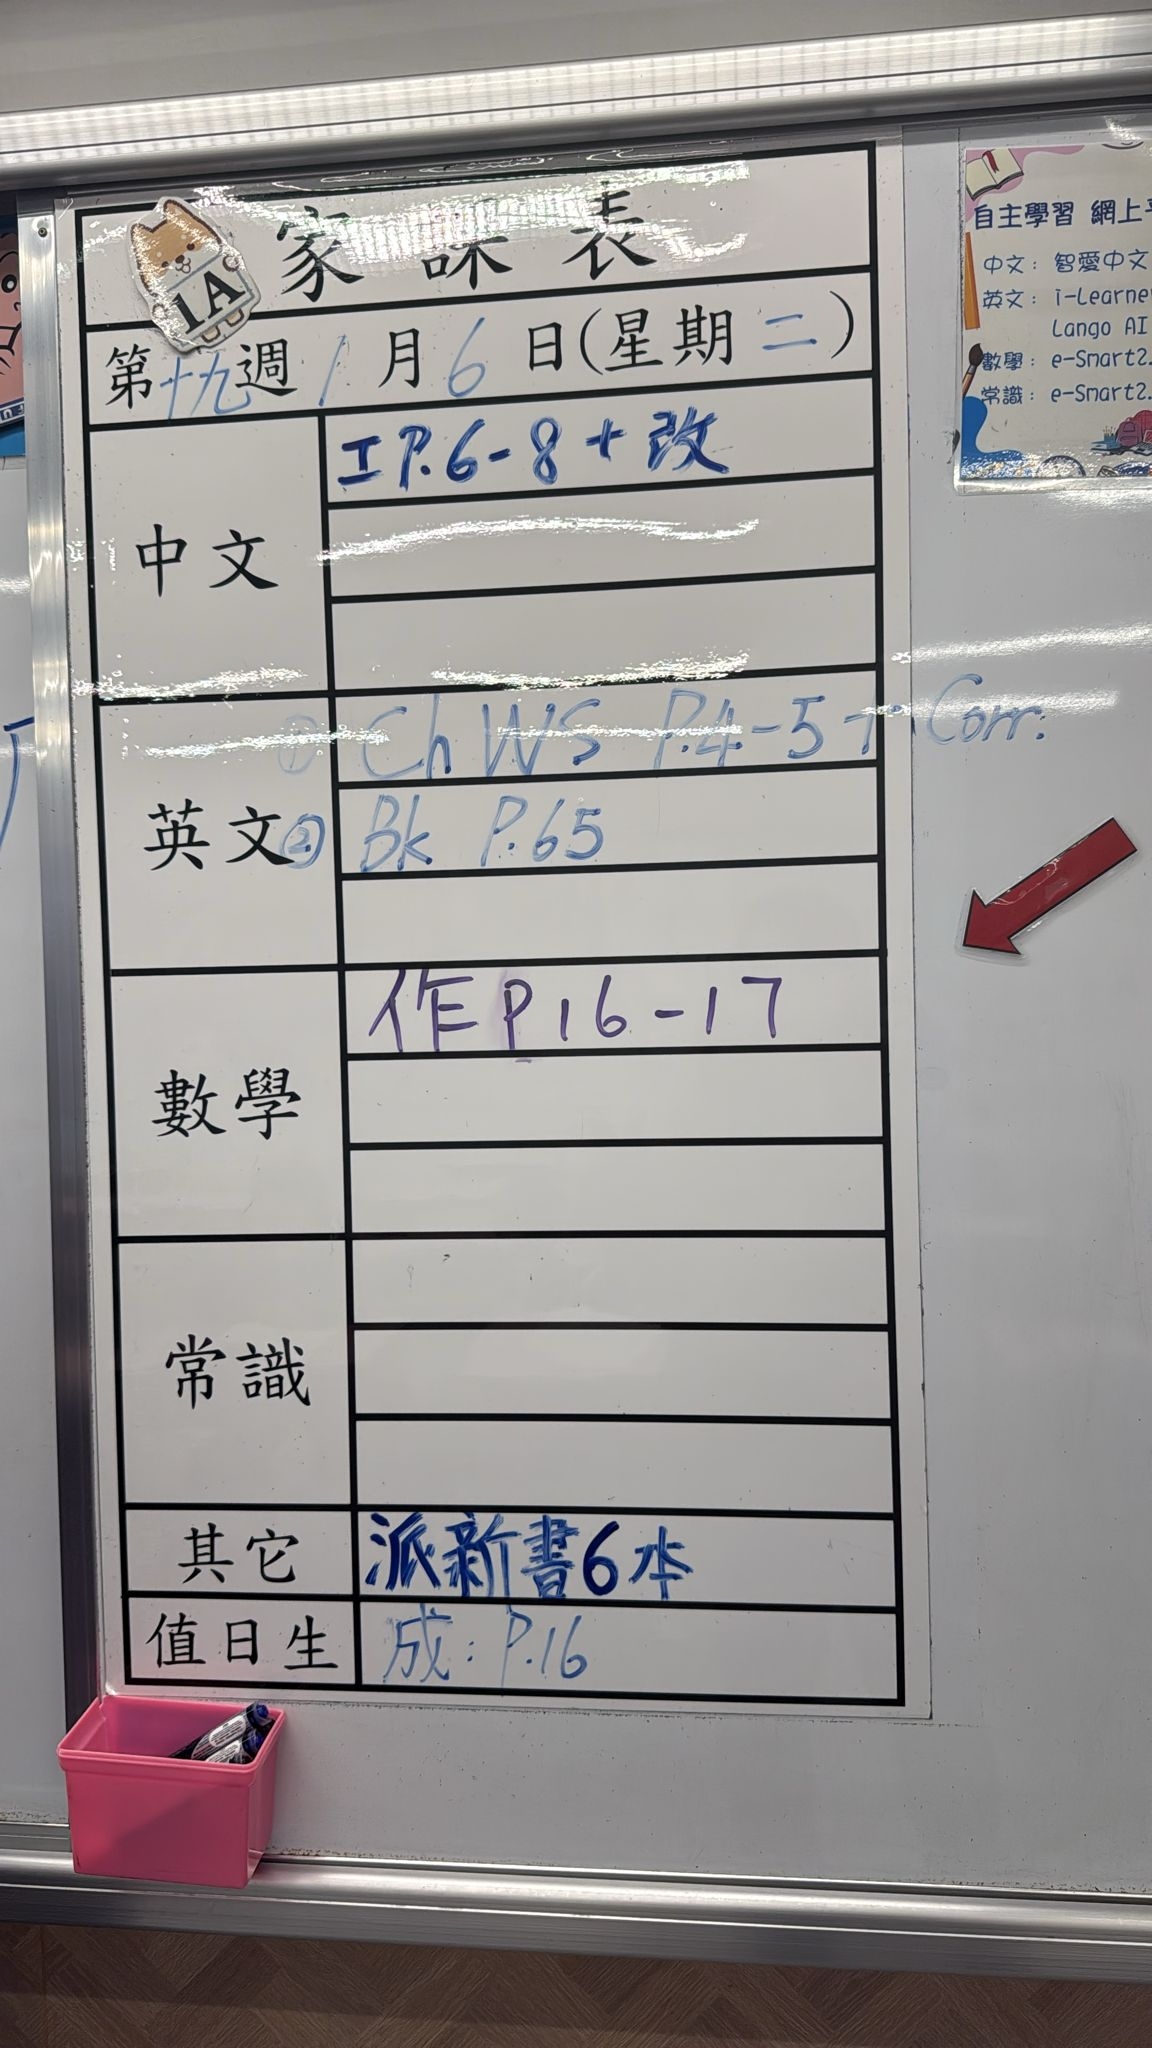 1A
家課表
第十九週 1月6日(星期二)
中文
工P.6-8+改
英文
① Ch WS P.4-5+Corr.
② Bk P.65
數學
作P16-17
常識
其它
派新書6本
值日生
成:P.16
自主學習 網上
中文: 智愛中文
英文: i-Learne
Lango AI
數學: e-Smart2.
常識: e-Smart2.